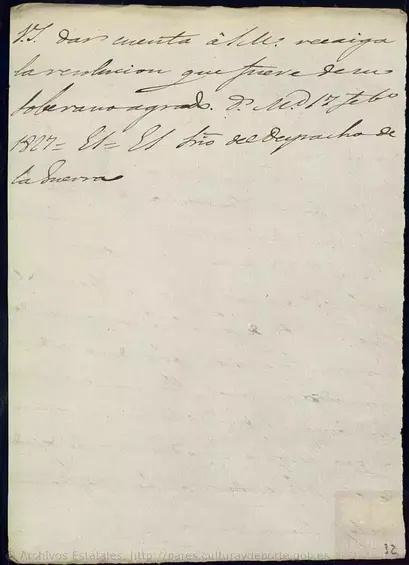 V.E. dar cuenta â S.M. recaiga
la resolucion que fuere de su
soberano agrado. D. Md. 17 Febo
1827= El= El Srio del Despacho de
la Guerra
© Archivos Estatales, http://pares.culturaydeporte.gob.es